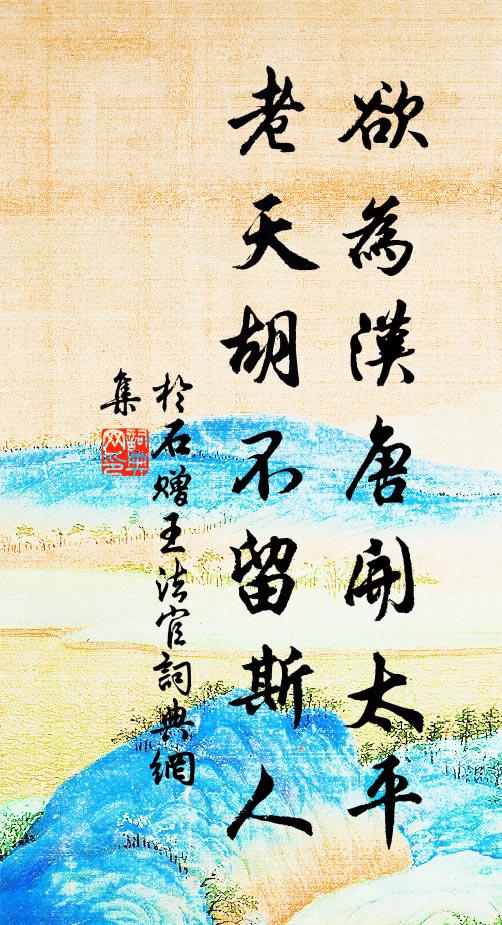 欲為漢唐開太平
老天胡不留斯人
於石赠王法官詞典網
集